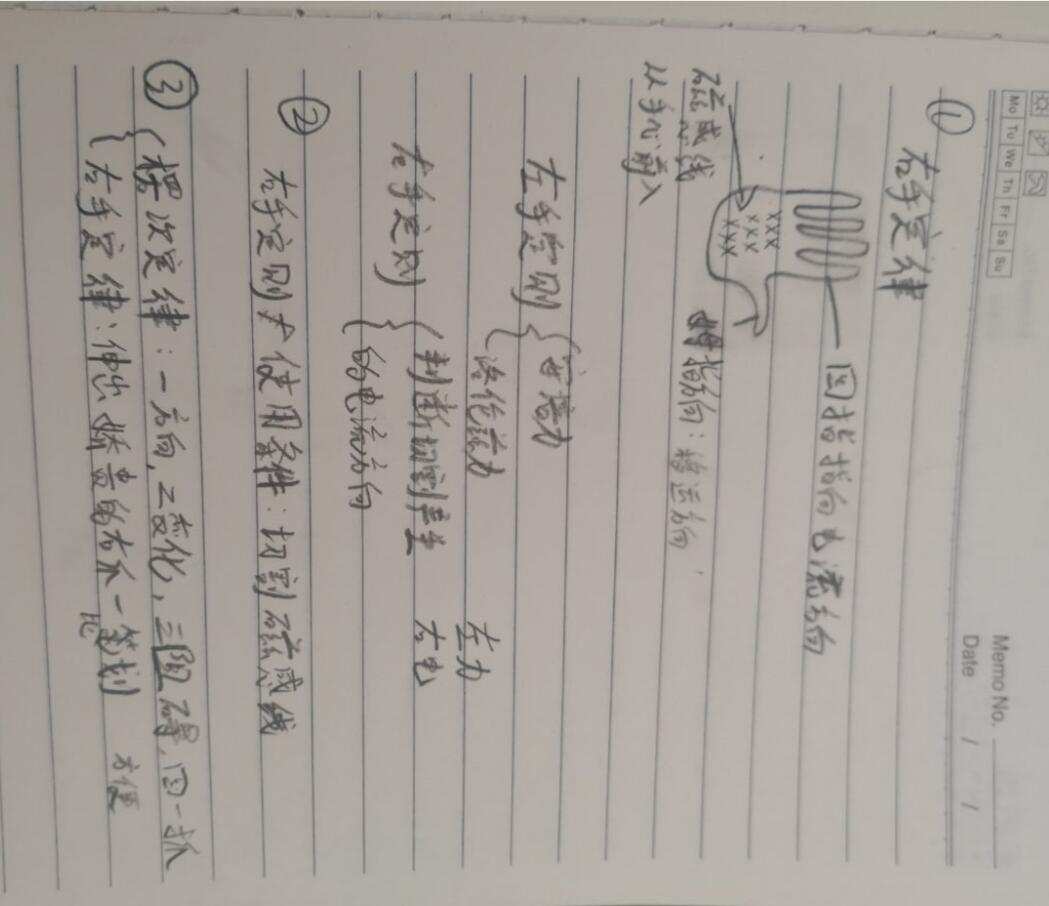 Memo No.
Mo Tu We Th Fr Sa Su
Date / /
① 右手定律
四指指向电流方向
磁感线
从手心射入
××× ××× ×××
拇指方向：棒运方向
左手定则 { 安培力
洛伦兹力 左力
右手定则 { 判断切割产生 右电
的电流方向
② 右手定则 使用条件：切割磁感线
③ { 楞次定律：一方向，二变化，三阻碍，四一抓
右手定律：伸出 娇贵的右爪一笔划 方便
比